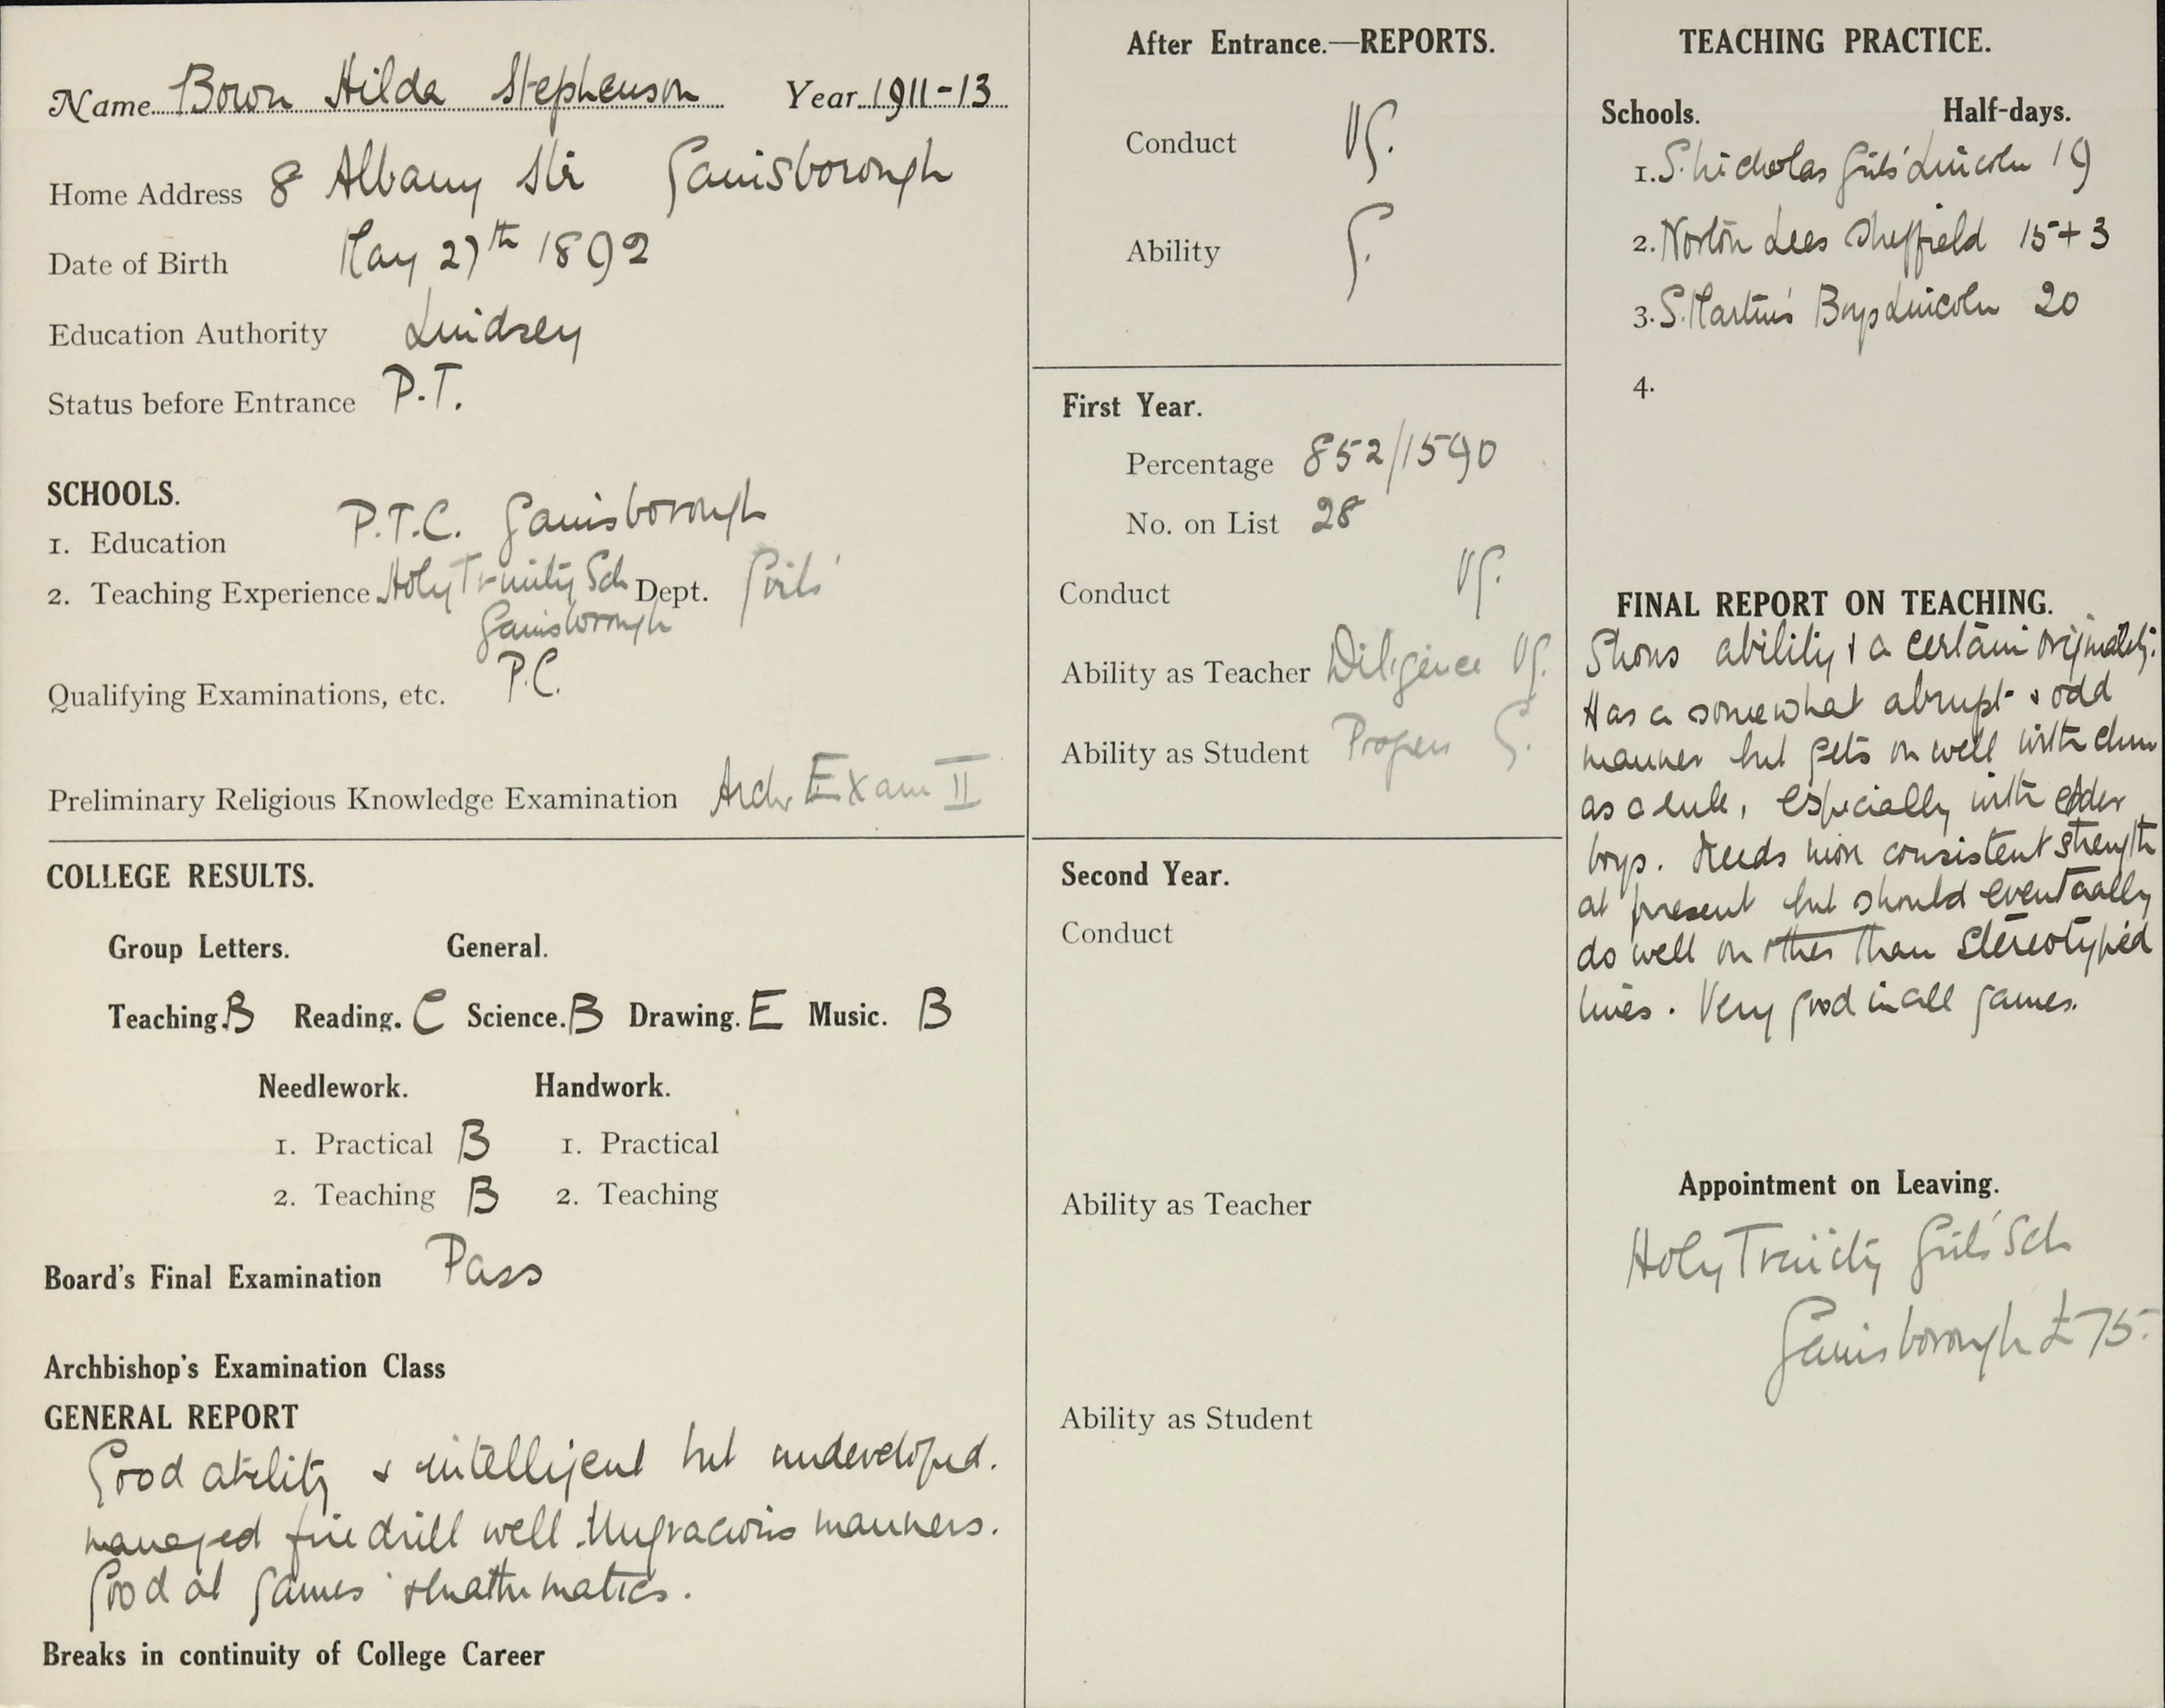 Name Bown Hilda Stephenson Year 1911-13
Home Address 8 Albany Str Gainsborough
Date of Birth May 27th 1892
Education Authority Lindsey
Status before Entrance P.T.
SCHOOLS.
1. Education P.T.C. Gainsborough
2. Teaching Experience Holy Trinity Sch Dept. Girls'
Gainsborough
Qualifying Examinations, etc. P.C.
Preliminary Religious Knowledge Examination Arch Exam II
COLLEGE RESULTS.
Group Letters. General.
Teaching. B Reading. C Science. B Drawing. E Music. B
Needlework. Handwork.
1. Practical B 1. Practical
2. Teaching B 2. Teaching
Board's Final Examination Pass
Archbishop's Examination Class
GENERAL REPORT
Good ability & intelligent but undeveloped.
managed fire drill well. Ungracious manners.
Good at games & mathematics.
Breaks in continuity of College Career
After Entrance.—REPORTS.
Conduct VG.
Ability G.
First Year.
Percentage 852/1590
No. on List 28
Conduct VG.
Ability as Teacher Diligence VG.
Ability as Student Progress G.
Second Year.
Conduct
Ability as Teacher
Ability as Student
TEACHING PRACTICE.
Schools. Half-days.
1. S. Nicholas Girls' Lincoln 19
2. Norton Lees Sheffield 15+3
3. S. Martin's Boys Lincoln 20
4.
FINAL REPORT ON TEACHING.
Shows ability & a certain originality.
Has a somewhat abrupt & odd
manner but gets on well with chn
as a rule, especially with older
boys. Needs more consistent strength
at present but should eventually
do well on other than stereotyped
lines. Very good in all games.
Appointment on Leaving.
Holy Trinity Girls' Sch
Gainsborough £75.